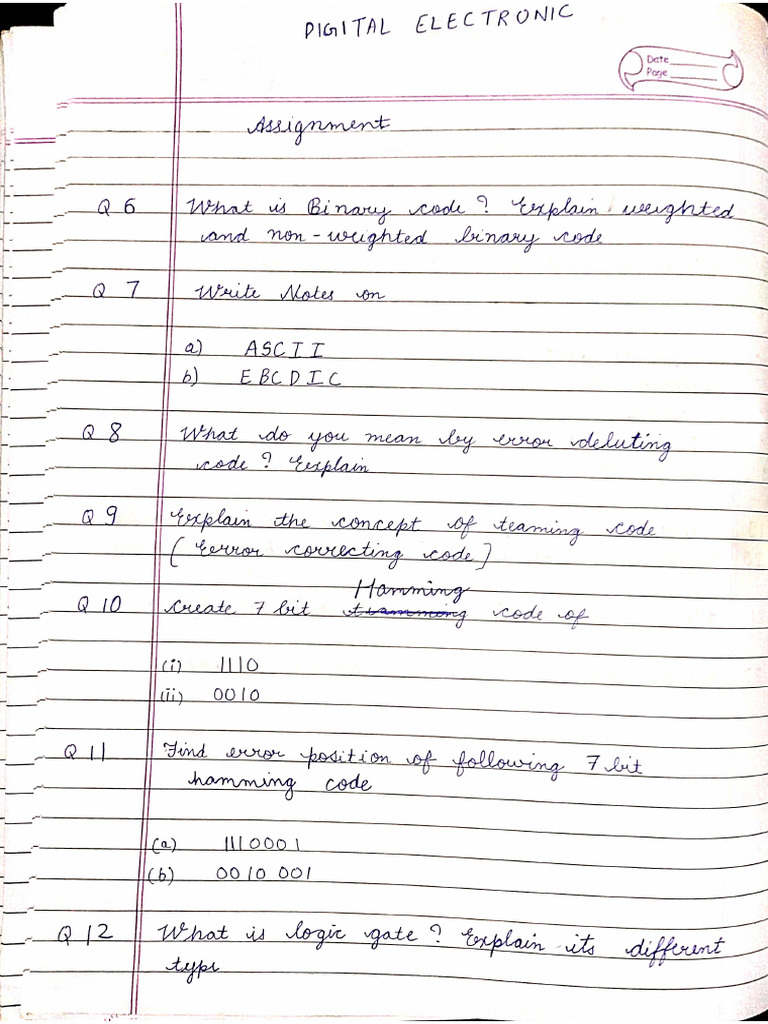 DIGITAL ELECTRONIC
Date
Page
Assignment
Q 6 What is Binary code? Explain weighted
and non-weighted binary code
Q 7 Write Notes on
a) ASCII
b) EBCDIC
Q 8 What do you mean by error deluting
code? Explain
Q 9 Explain the concept of teaming code
( Eerror correcting code]
Hamming
Q 10 Create 7 bit code of
(i) 1110
(ii) 0010
Q 11 Find error position of following 7 bit
hamming code
(a) 1110001
(b) 0010 001
Q 12 What is logic gate? Explain its different
type